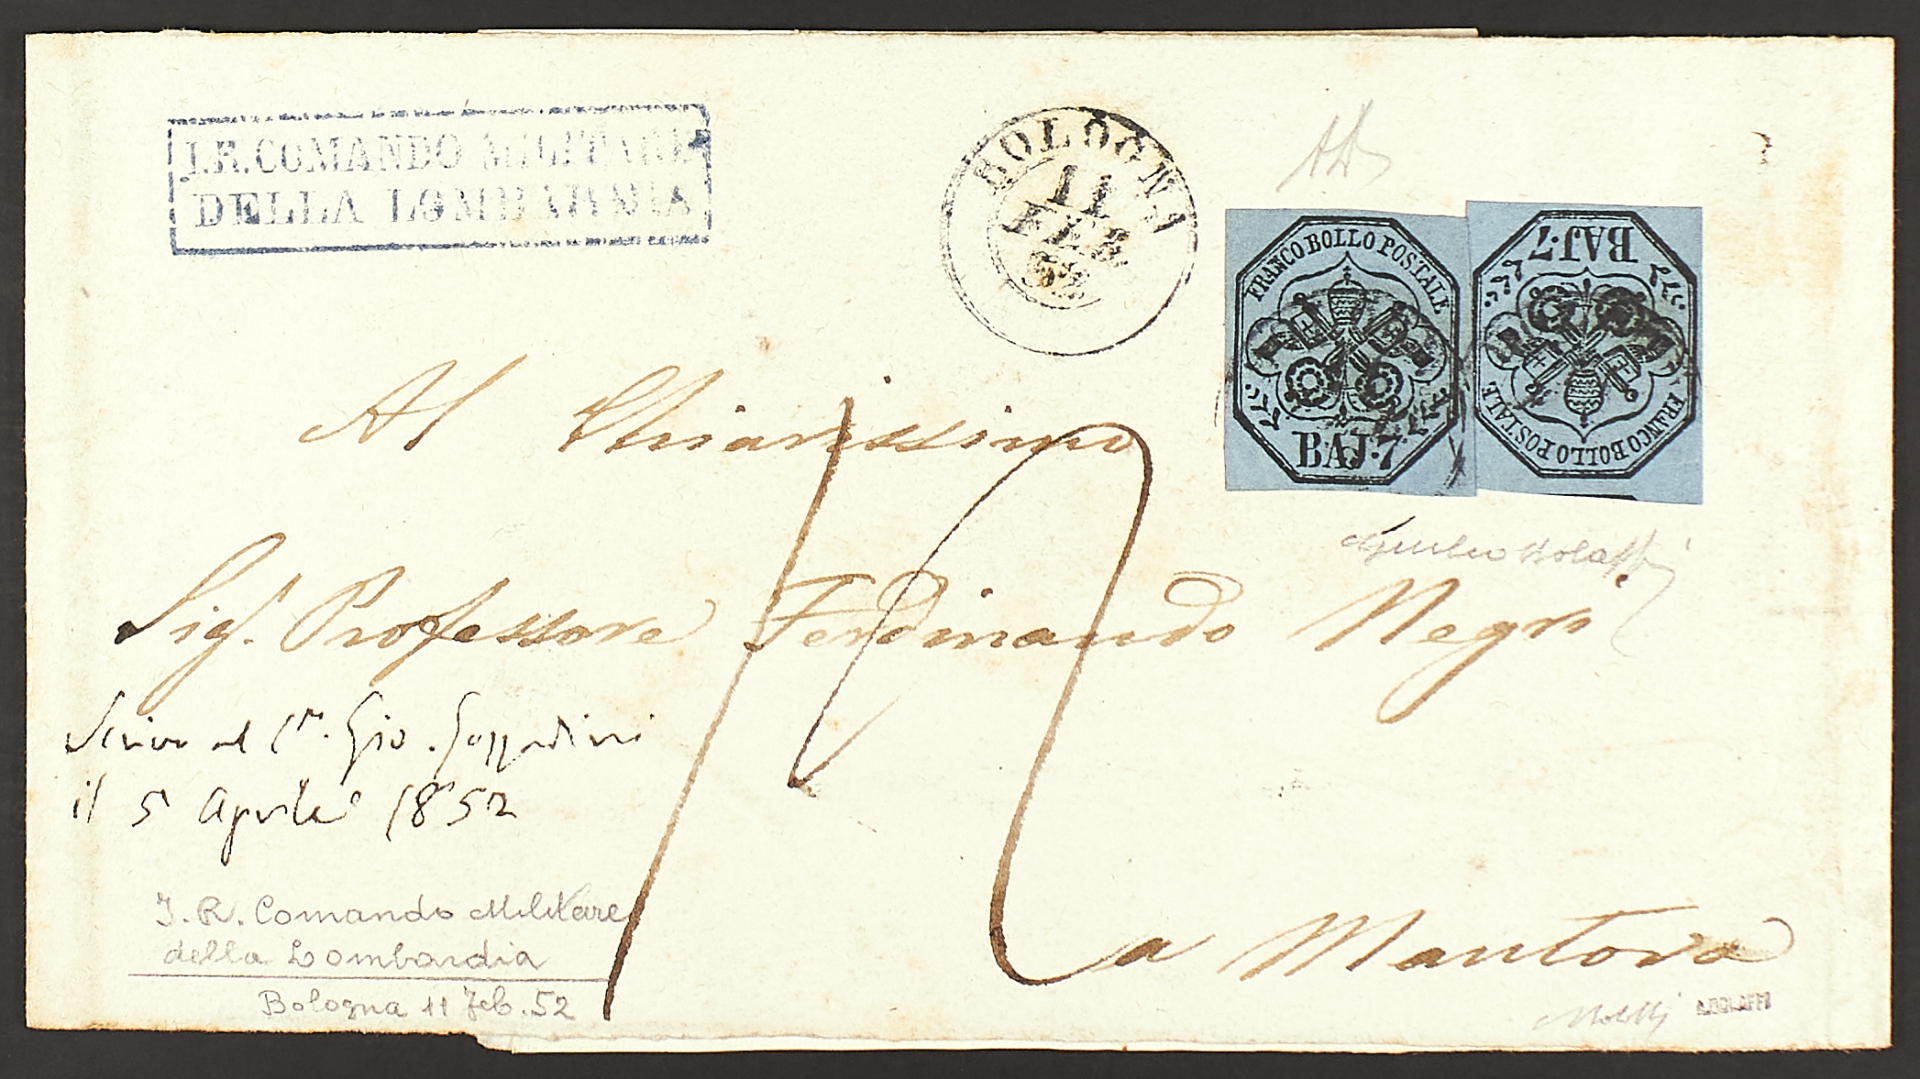 I.R. COMANDO MILITARE
DELLA LOMBARDIA
BOLOGNA
11
FEB
52
FRANCO BOLLO POSTALE
BAJ·7
BAJ·7
FRANCO BOLLO POSTALE
Al Chiarissimo
Sigr. Professore Ferdinando Negri
al Cte. Gio. Gozzadini
il 5 Aprile 1852
I. R. Comando Militare
della Lombardia
Bologna 11 Feb. 52
a Mantova
Giulio Bolaffi
A.BOLAFFI